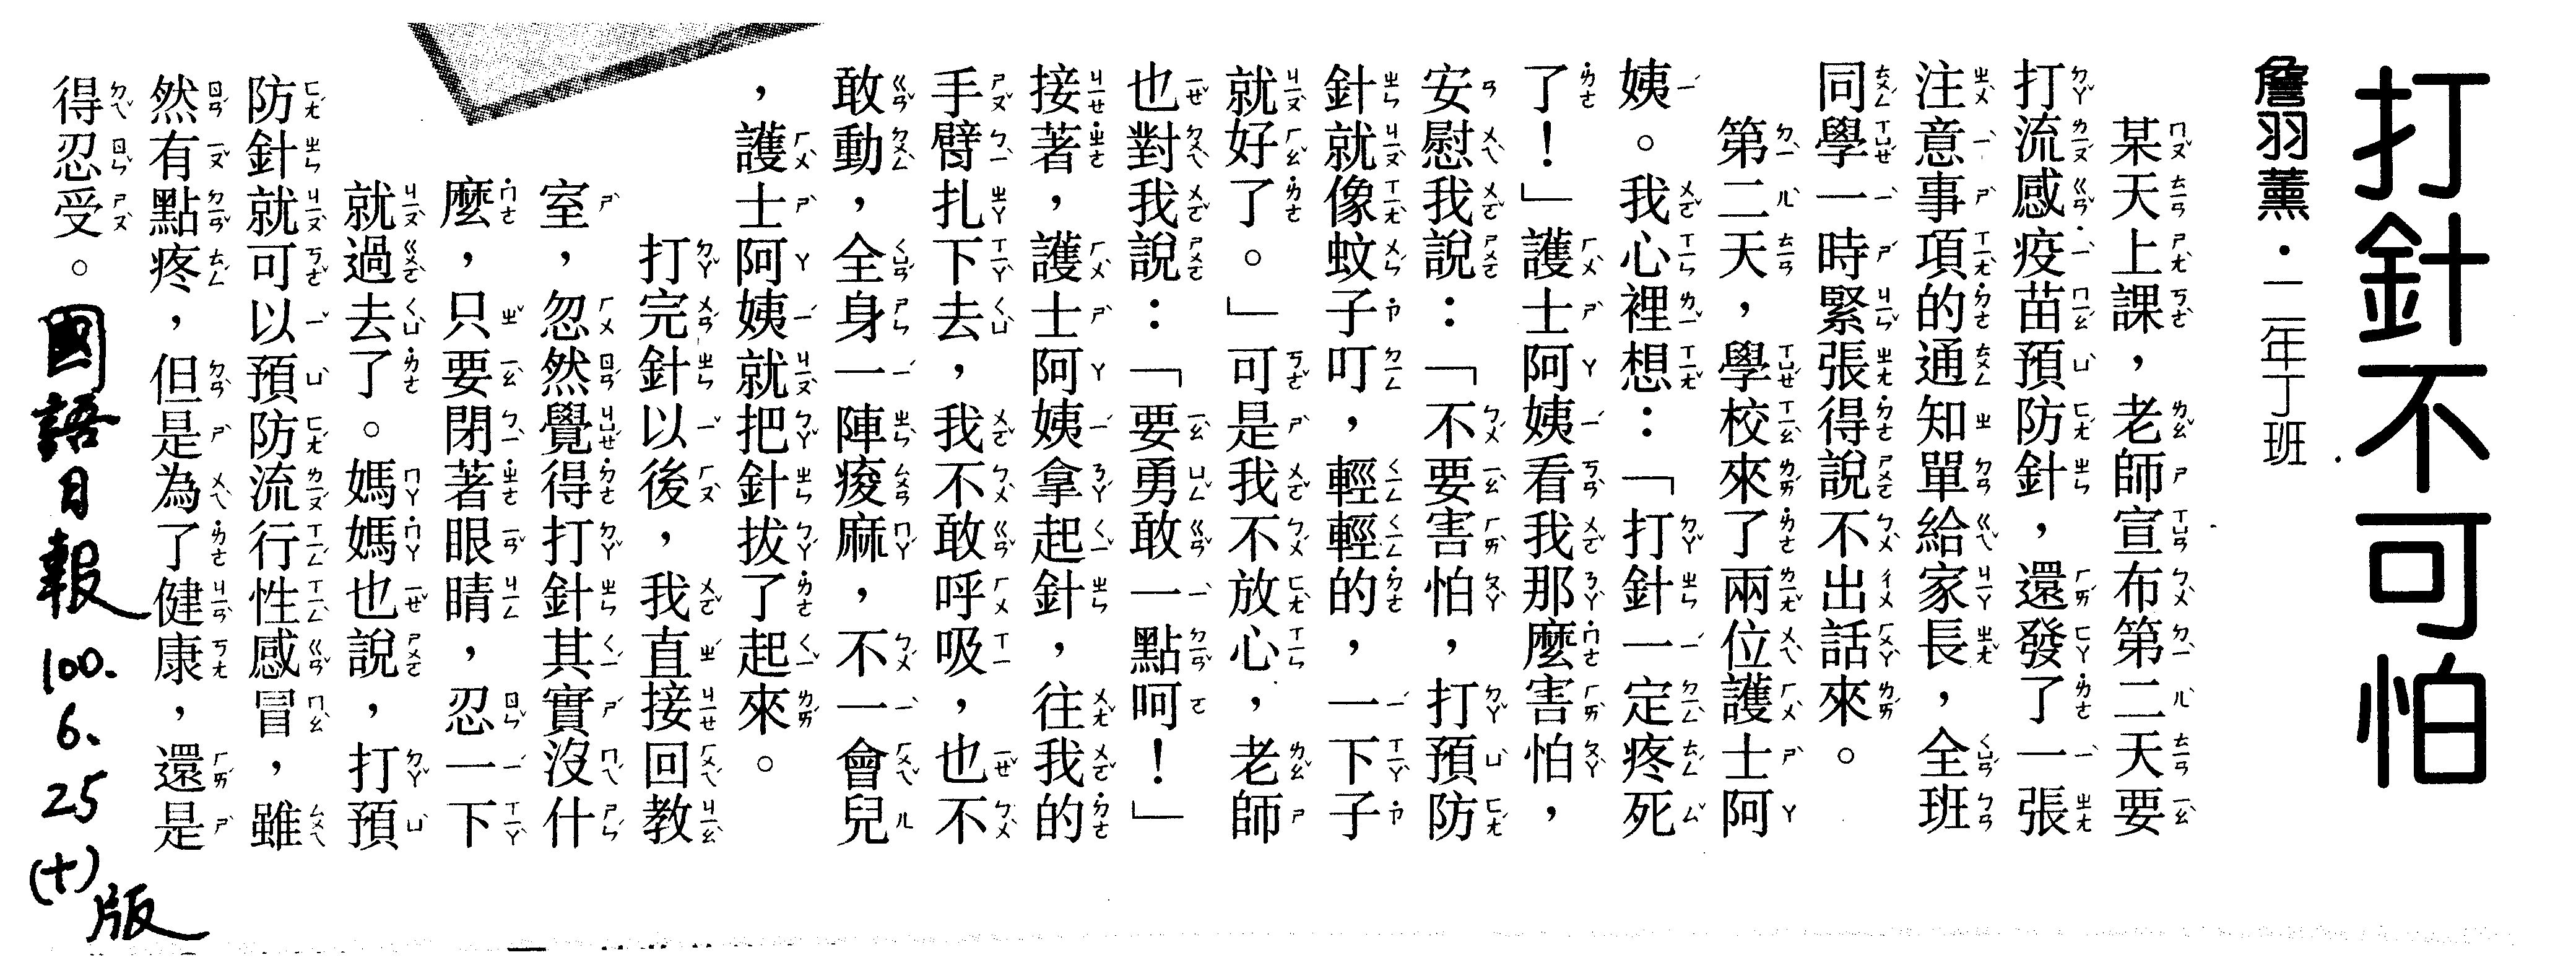 打針不可怕
詹羽薰•二年丁班
某天上課，老師宣布第二天要
打流感疫苗預防針，還發了一張
注意事項的通知單給家長，全班
同學一時緊張得說不出話來。
第二天，學校來了兩位護士阿
姨。我心裡想：「打針一定疼死
了！」護士阿姨看我那麼害怕，
安慰我說：「不要害怕，打預防
針就像蚊子叮，輕輕的，一下子
就好了。」可是我不放心，老師
也對我說：「要勇敢一點呵！」
接著，護士阿姨拿起針，往我的
手臂扎下去，我不敢呼吸，也不
敢動，全身一陣痠麻，不一會兒
，護士阿姨就把針拔了起來。
打完針以後，我直接回教
室，忽然覺得打針其實沒什
麼，只要閉著眼睛，忍一下
就過去了。媽媽也說，打預
防針就可以預防流行性感冒，雖
然有點疼，但是為了健康，還是
得忍受。
國語日報 100.6.25 (十)版